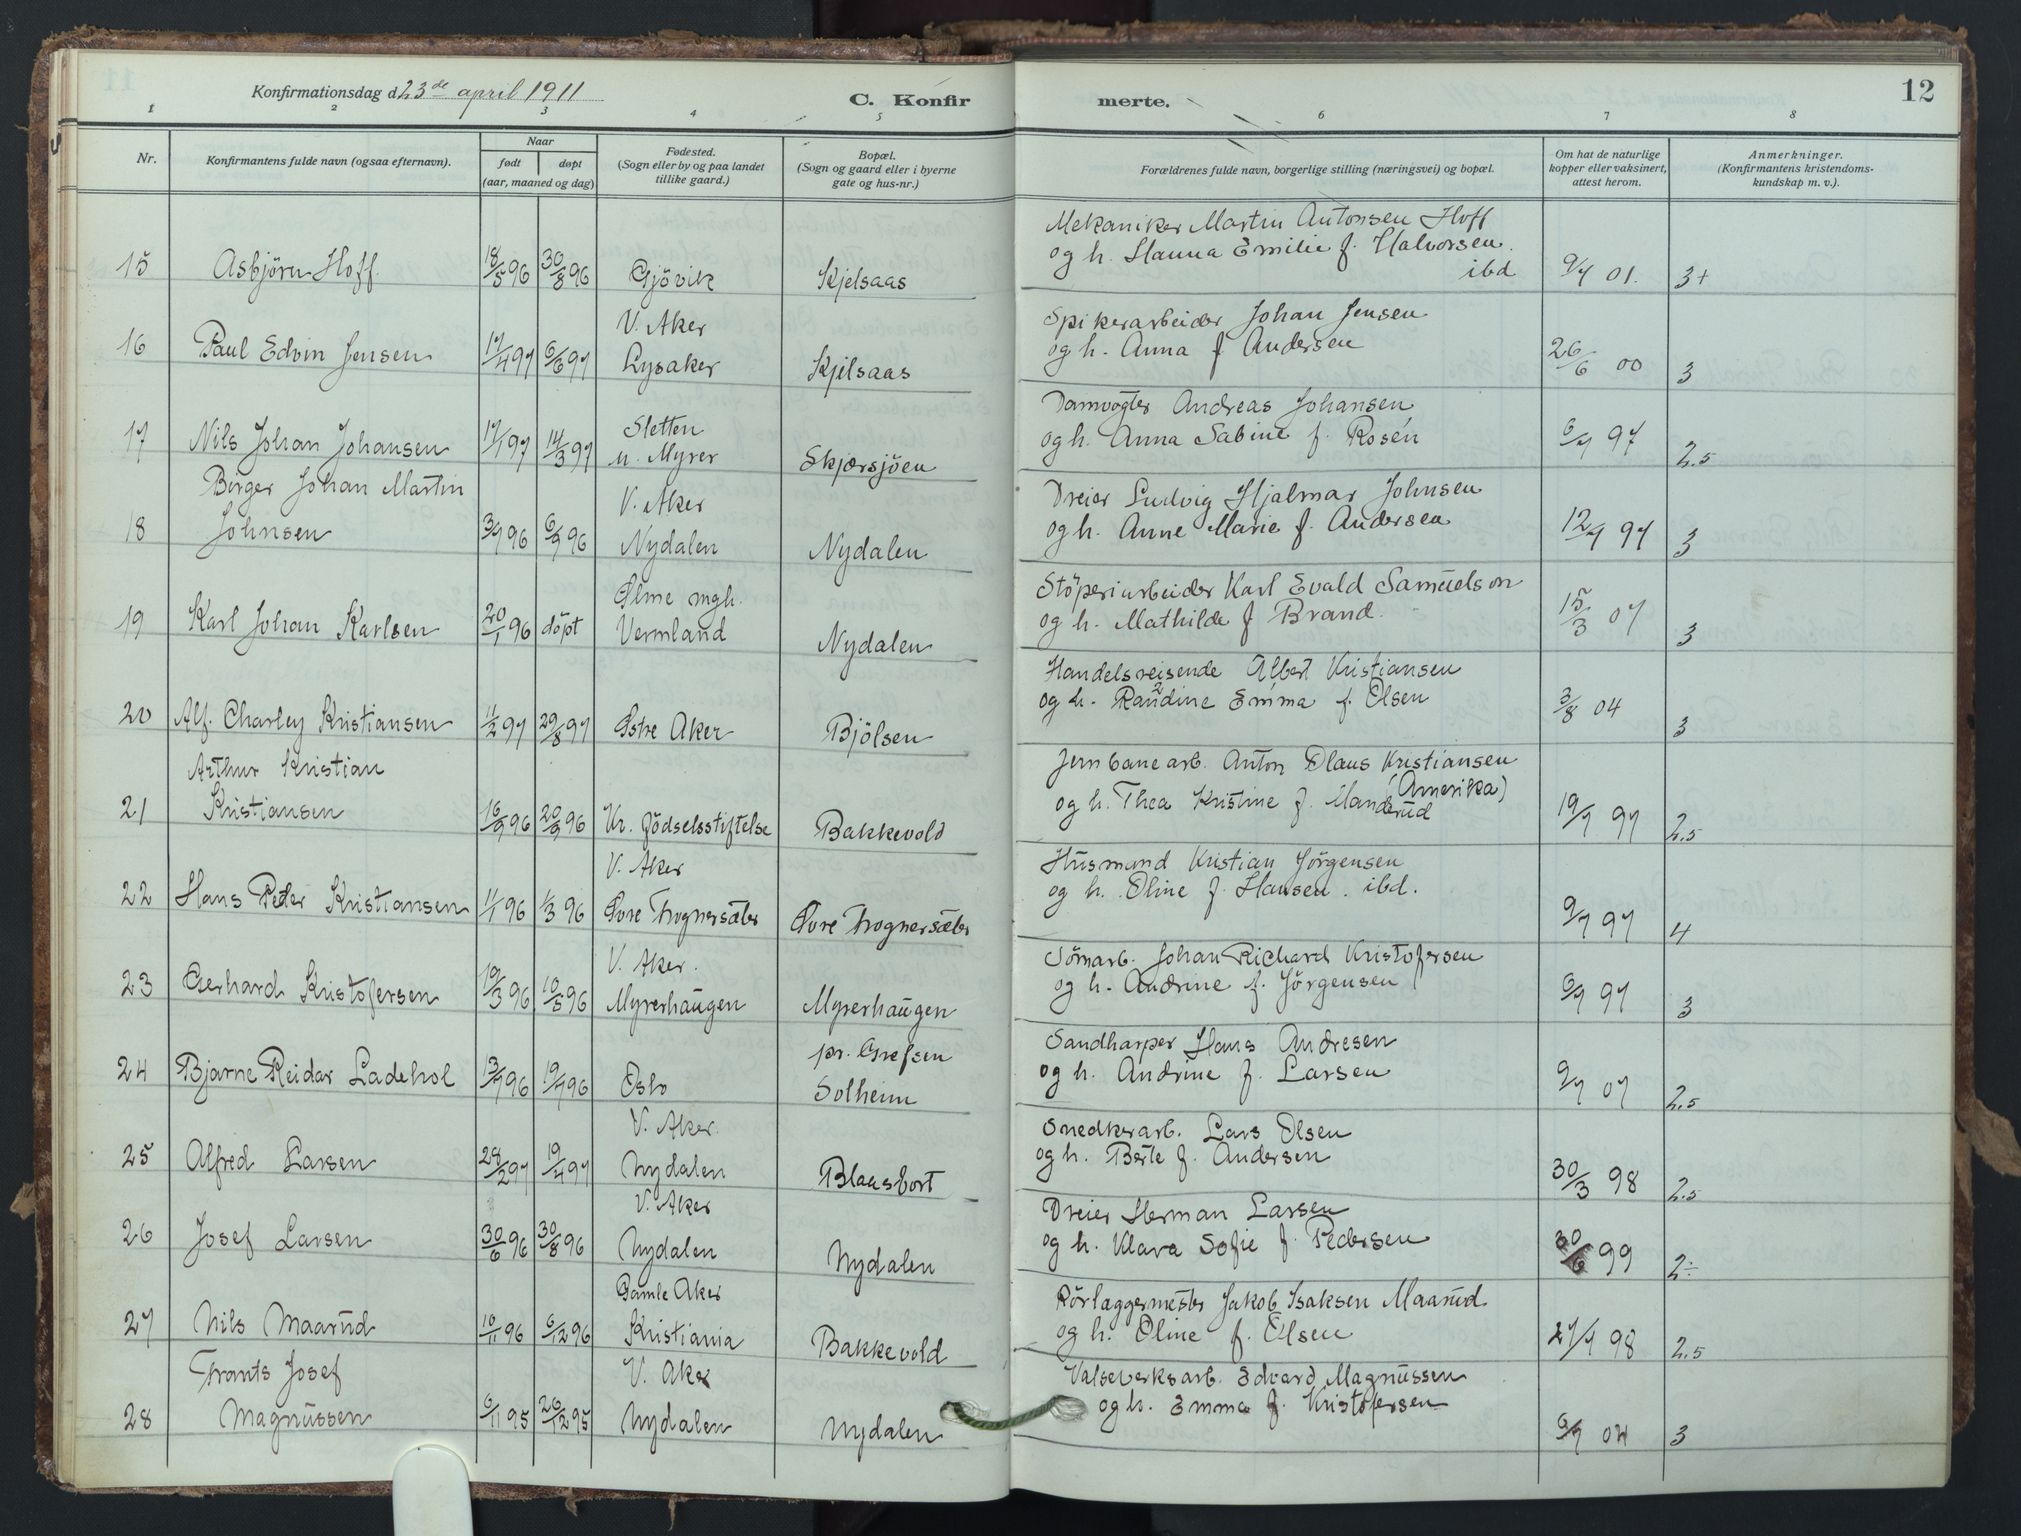 Konfirmationsdag d. 23de april 1911
C. Konfir merte. 12
1 2 3 4 5 6 7 8
Nr.
Konfirmantens fulde navn (ogsaa efternavn).
Naar
født døpt
(aar, maaned og dag)
Fødested.
(Sogn eller by og paa landet
tillike gaard.)
Bopæl.
(Sogn og gaard eller i byerne
gate og hus-nr.)
Forældrenes fulde navn, borgerlige stilling (næringsvei) og bopæl.
Om hat de naturlige
kopper eller vaksinert,
attest herom.
Anmerkninger.
(Konfirmantens kristendoms-
kundskap m. v.).
Mekaniker Martin Antonsen Hoff
og h. Hanna Emilie f. Halvorsen.
15 Asbjörn Hoff 18/5 96 30/8 96 Gjövik Kjelsaas ibd 9/7 01. 3+
V. Aker Spikerarbeider Johan Jensen
16 Paul Edvin Jensen 17/4 97 6/6 97 Lysaker Kjelsaas og h. Anna f Andersen 26/6 00 3
Sletten Damvogter Andreas Johansen
17 Nils Johan Johansen 17/1 97 14/3 97 n. Myrer Skjærsjöen og h. Anna Sabine f. Rosén 6/7 97 2.5
Birger Johan Martin V. Aker Dreier Ludvig Hjalmar Johnsen
18 Johnsen 3/7 96 6/9 96 Nydalen Nydalen og h. Anne Marie f. Andersen 12/7 97 3
Ölme mgh. Stöperiarbeider Karl Evald Samuelson
19 Karl Johan Karlsen 20/1 96 döpt Vermland Nydalen og h. Mathilde f Brand. 15/3 07 3
Handelsreisende Albert Kristiansen
20 Alf. Charley Kristiansen 11/2 97 29/8 97 Østre Aker Bjölsen og h. Randine Emma f. Olsen 3/8 04 3
Arthur Kristian Jernbanearb. Anton Olaus Kristiansen
(Amerika)
21 Kristiansen 16/9 96 20/9 96 Kr. födselsstiftelse Bakkevold og h. Thea Kristine f. Manderud 19/7 97 2.5
V. Aker Husmand Kristian Jörgensen
22 Hans Peder Kristiansen 11/1 96 1/3 96 Øvre Frognersæter Øvre Frognersæter og h. Oline f. Hansen. ibd. 9/7 97 4
V. Aker. Sömarb. Johan Richard Kristofersen
23 Gerhard Kristofersen 19/3 96 10/5 96 Myrerhaugen Myrerhaugen og h. Andrine f. Jörgensen 6/7 97 3
pr. Grefsen Sandharper Hans Andresen
24 Bjarne Reidar Ladehol 13/7 96 19/7 96 Oslo Solheim og h. Andrine f. Larsen 9/7 07 2.5
V. Aker. Snedkerarb. Lars Olsen
25 Alfred Larsen 28/2 97 19/4 97 Nydalen Blaasbort og h. Berte f. Andersen 30/3 98 2.5
V. Aker Dreier Herman Larsen
26 Josef Larsen 30/6 96 30/8 96 Nydalen Nydalen og h. Klara Sofie f. Pedersen 30/6 99 2÷
Gamle Aker Rörlæggermester Jakob Isaksen Maarud
27 Nils Maarud 10/11 96 6/12 96 Kristiania Bakkevold og h. Oline f. Olsen 27/7 98 2.5
Frants Josef V. Aker Valseverksarb. Edvard Magnussen
28 Magnussen 6/11 95 26/12 95 Nydalen Nydalen og h. Emma f. Kristofersen 6/7 04 3